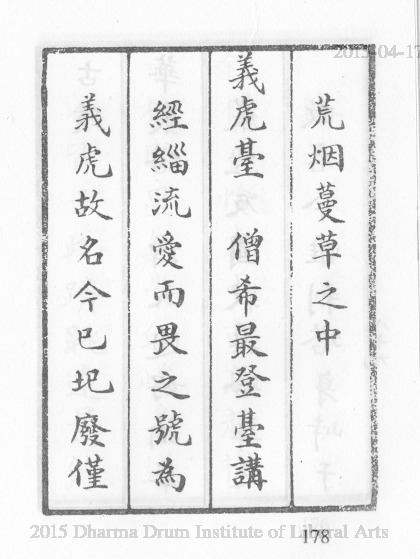 2015-04-17
荒烟蔓草之中
義虎臺 僧希最登臺講
經緇流愛而畏之號為
義虎故名今已圯廢僅
178
2015 Dharma Drum Institute of Liberal Arts